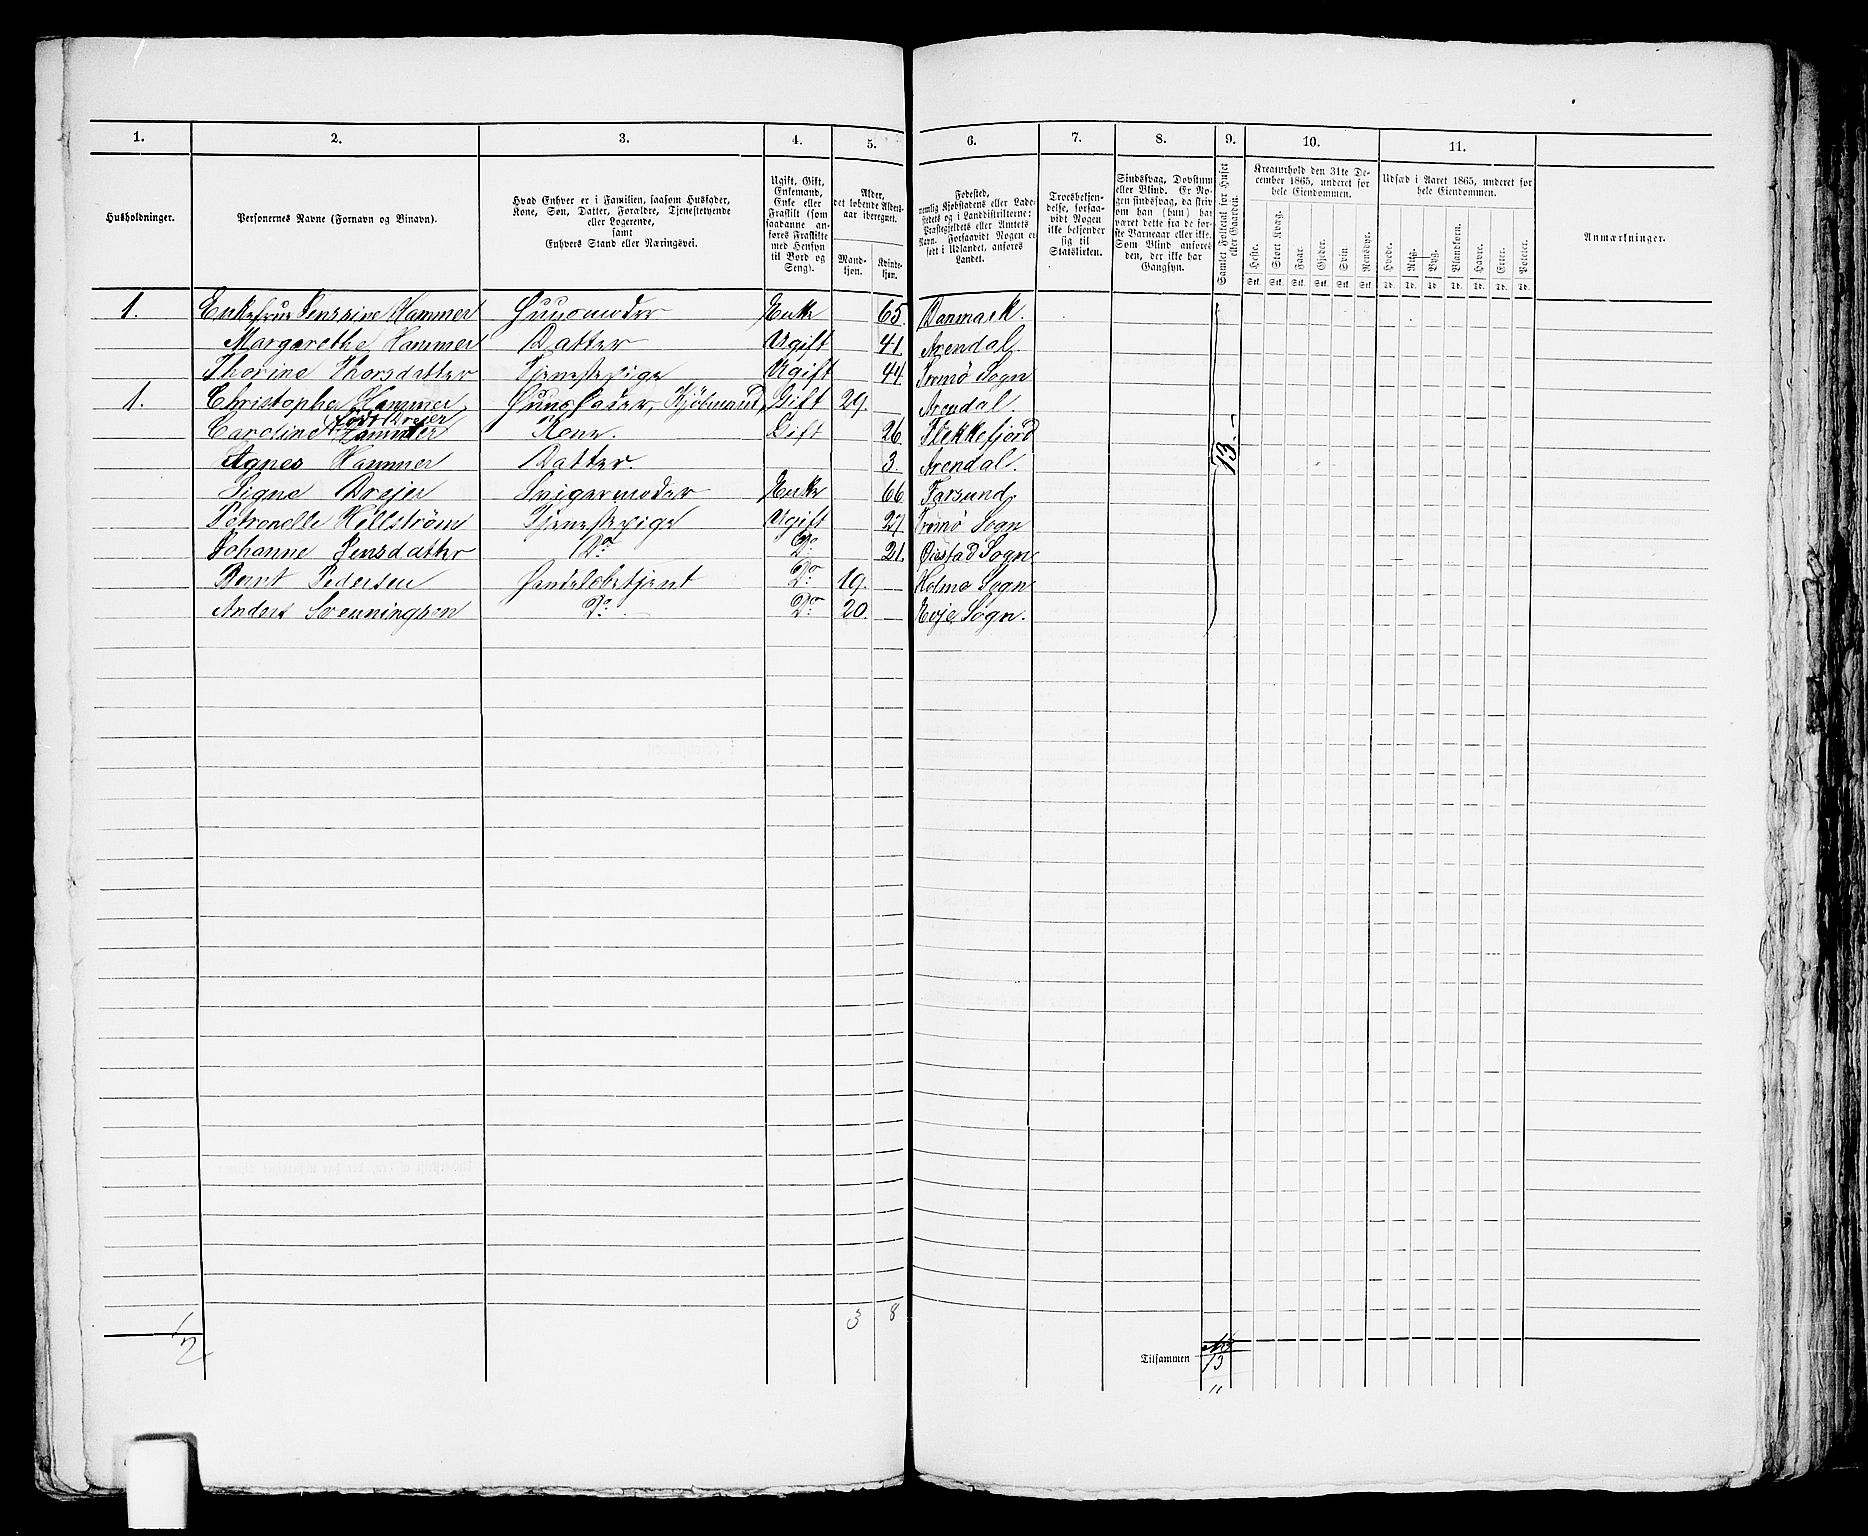 1. 2. 3. 4. 5. 6. 7. 8. 9. 10. 11.
Husholdninger.
Personernes Navne (Fornavn og Binavn).
Hvad Enhver er i Familien, saasom Husfader,
Kone, Søn, Datter, Forældre, Tjenestetyende
eller Logerende,
samt
Enhvers Stand eller Næringsvei.
Ugift, Gift,
Enkemand,
Enke eller
Fraskilt (som
saadanne an-
føres Fraskilte
med Hensyn
til Bord og
Seng).
Alder,
det løbende Alders-
aar iberegnet.
Mand-
kjøn.
Kvinde-
kjøn.
Fødested,
nemlig Kjøbstadens eller Lade-
stedets og i Landdistrikterne:
Præstegjeldets eller Annexets
Navn. Forsaavidt Nogen er
født i Udlandet, anføres
Landet.
Troesbekjen-
delse, forsaa-
vidt Nogen
ikke bekjender
sig til
Statskirken.
Sindssvag, Døvstum
eller Blind. Er No-
gen sindssvag, da skriv
om han (hun) har
været dette fra de før-
ste Barneaar eller ikke.
Som Blind anføres
den, der ikke har
Gangsyn.
Samlet Folketal for Huset
eller Gaarden.
Kreaturhold den 31te De-
cember 1865, underet for
hele Eiendommen.
Heste. Stort Kvæg. Faar. Gjeder. Svin. Rensdyr.
Stk. Stk. Stk. Stk. Stk. Stk.
Udsæd i Aaret 1865, underet for
hele Eiendommen.
Hvede. Rug. Byg. Blandkorn. Havre. Erter. Poteter.
Td. Td. Td. Td. Td. Td. Td.
Anmærkninger.
1. Enkefrue Jenssine Hammer Huusmoder Enke 65. Danmark.
Margarethe Hammer Datter Ugift 41. Arendal.
Thorine Thorsdatter Tjenestepige Ugift 44. Tromø Sogn
1. Christopher Hammer Huusfader, Kjøbmand, Gift 29. Arendal.
født Drejer
Caroline Hammer Kone. Gift 26. Flekkefjord
Agnes Hammer Datter. 3. Arendal. 13.
Signe Drejer Svigermoder Enke 66 Farsund.
Petronelle Hellstrøm Tjenestepige Ugift 27 Tromø Sogn
Johanne Jensdatter Do Do 21. Øiestad Sogn
Bernt Pedersen Handelsbetjent Do 19. Holme Sogn
Anders Svenningsen Do Do 20. Evje Sogn.
2 3 8
Tilsammen 13
11